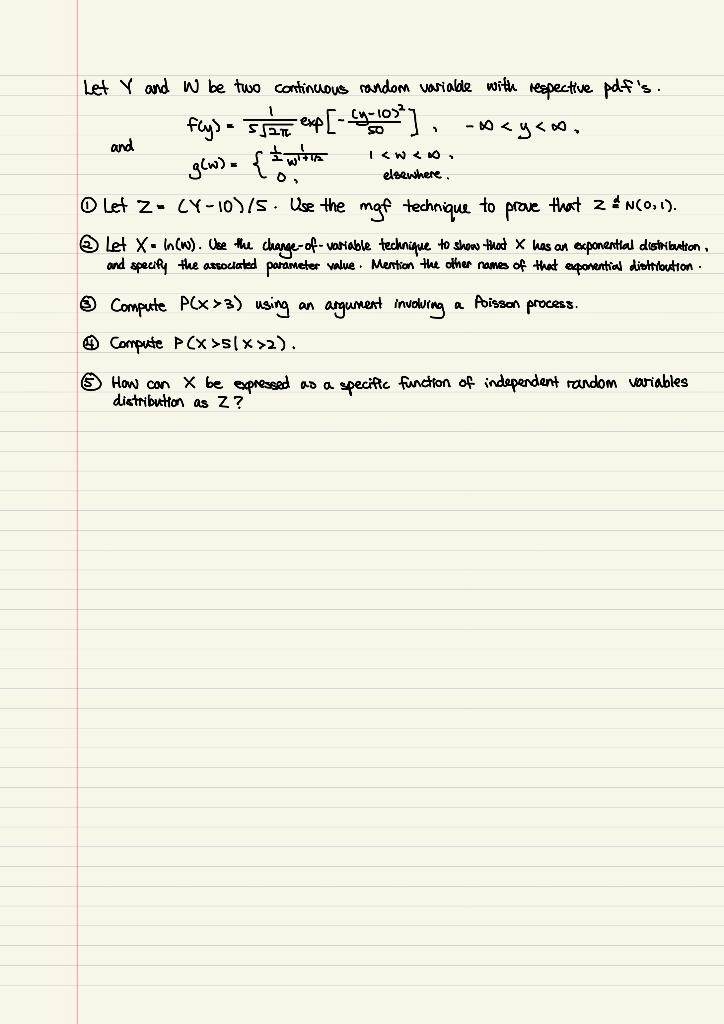 Let Y and W be two continuous random variable with respective pdf's.
f(y) = 1/(5√2π) exp[-(y-10)²/50], -∞ < y < ∞,
and
g(w) = { 1/2 1/w^(1+1/2) 1 < w < ∞,
0, elsewhere.
① Let Z = (Y-10)/5. Use the mgf technique to prove that Z =ᵈ N(0,1).
② Let X = ln(W). Use the change-of-variable technique to show that X has an exponential distribution,
and specify the associated parameter value. Mention the other names of that exponential distribution.
③ Compute P(X>3) using an argument involving a Poisson process.
④ Compute P(X>5|X>2).
⑤ How can X be expressed as a specific function of independent random variables
distribution as Z?